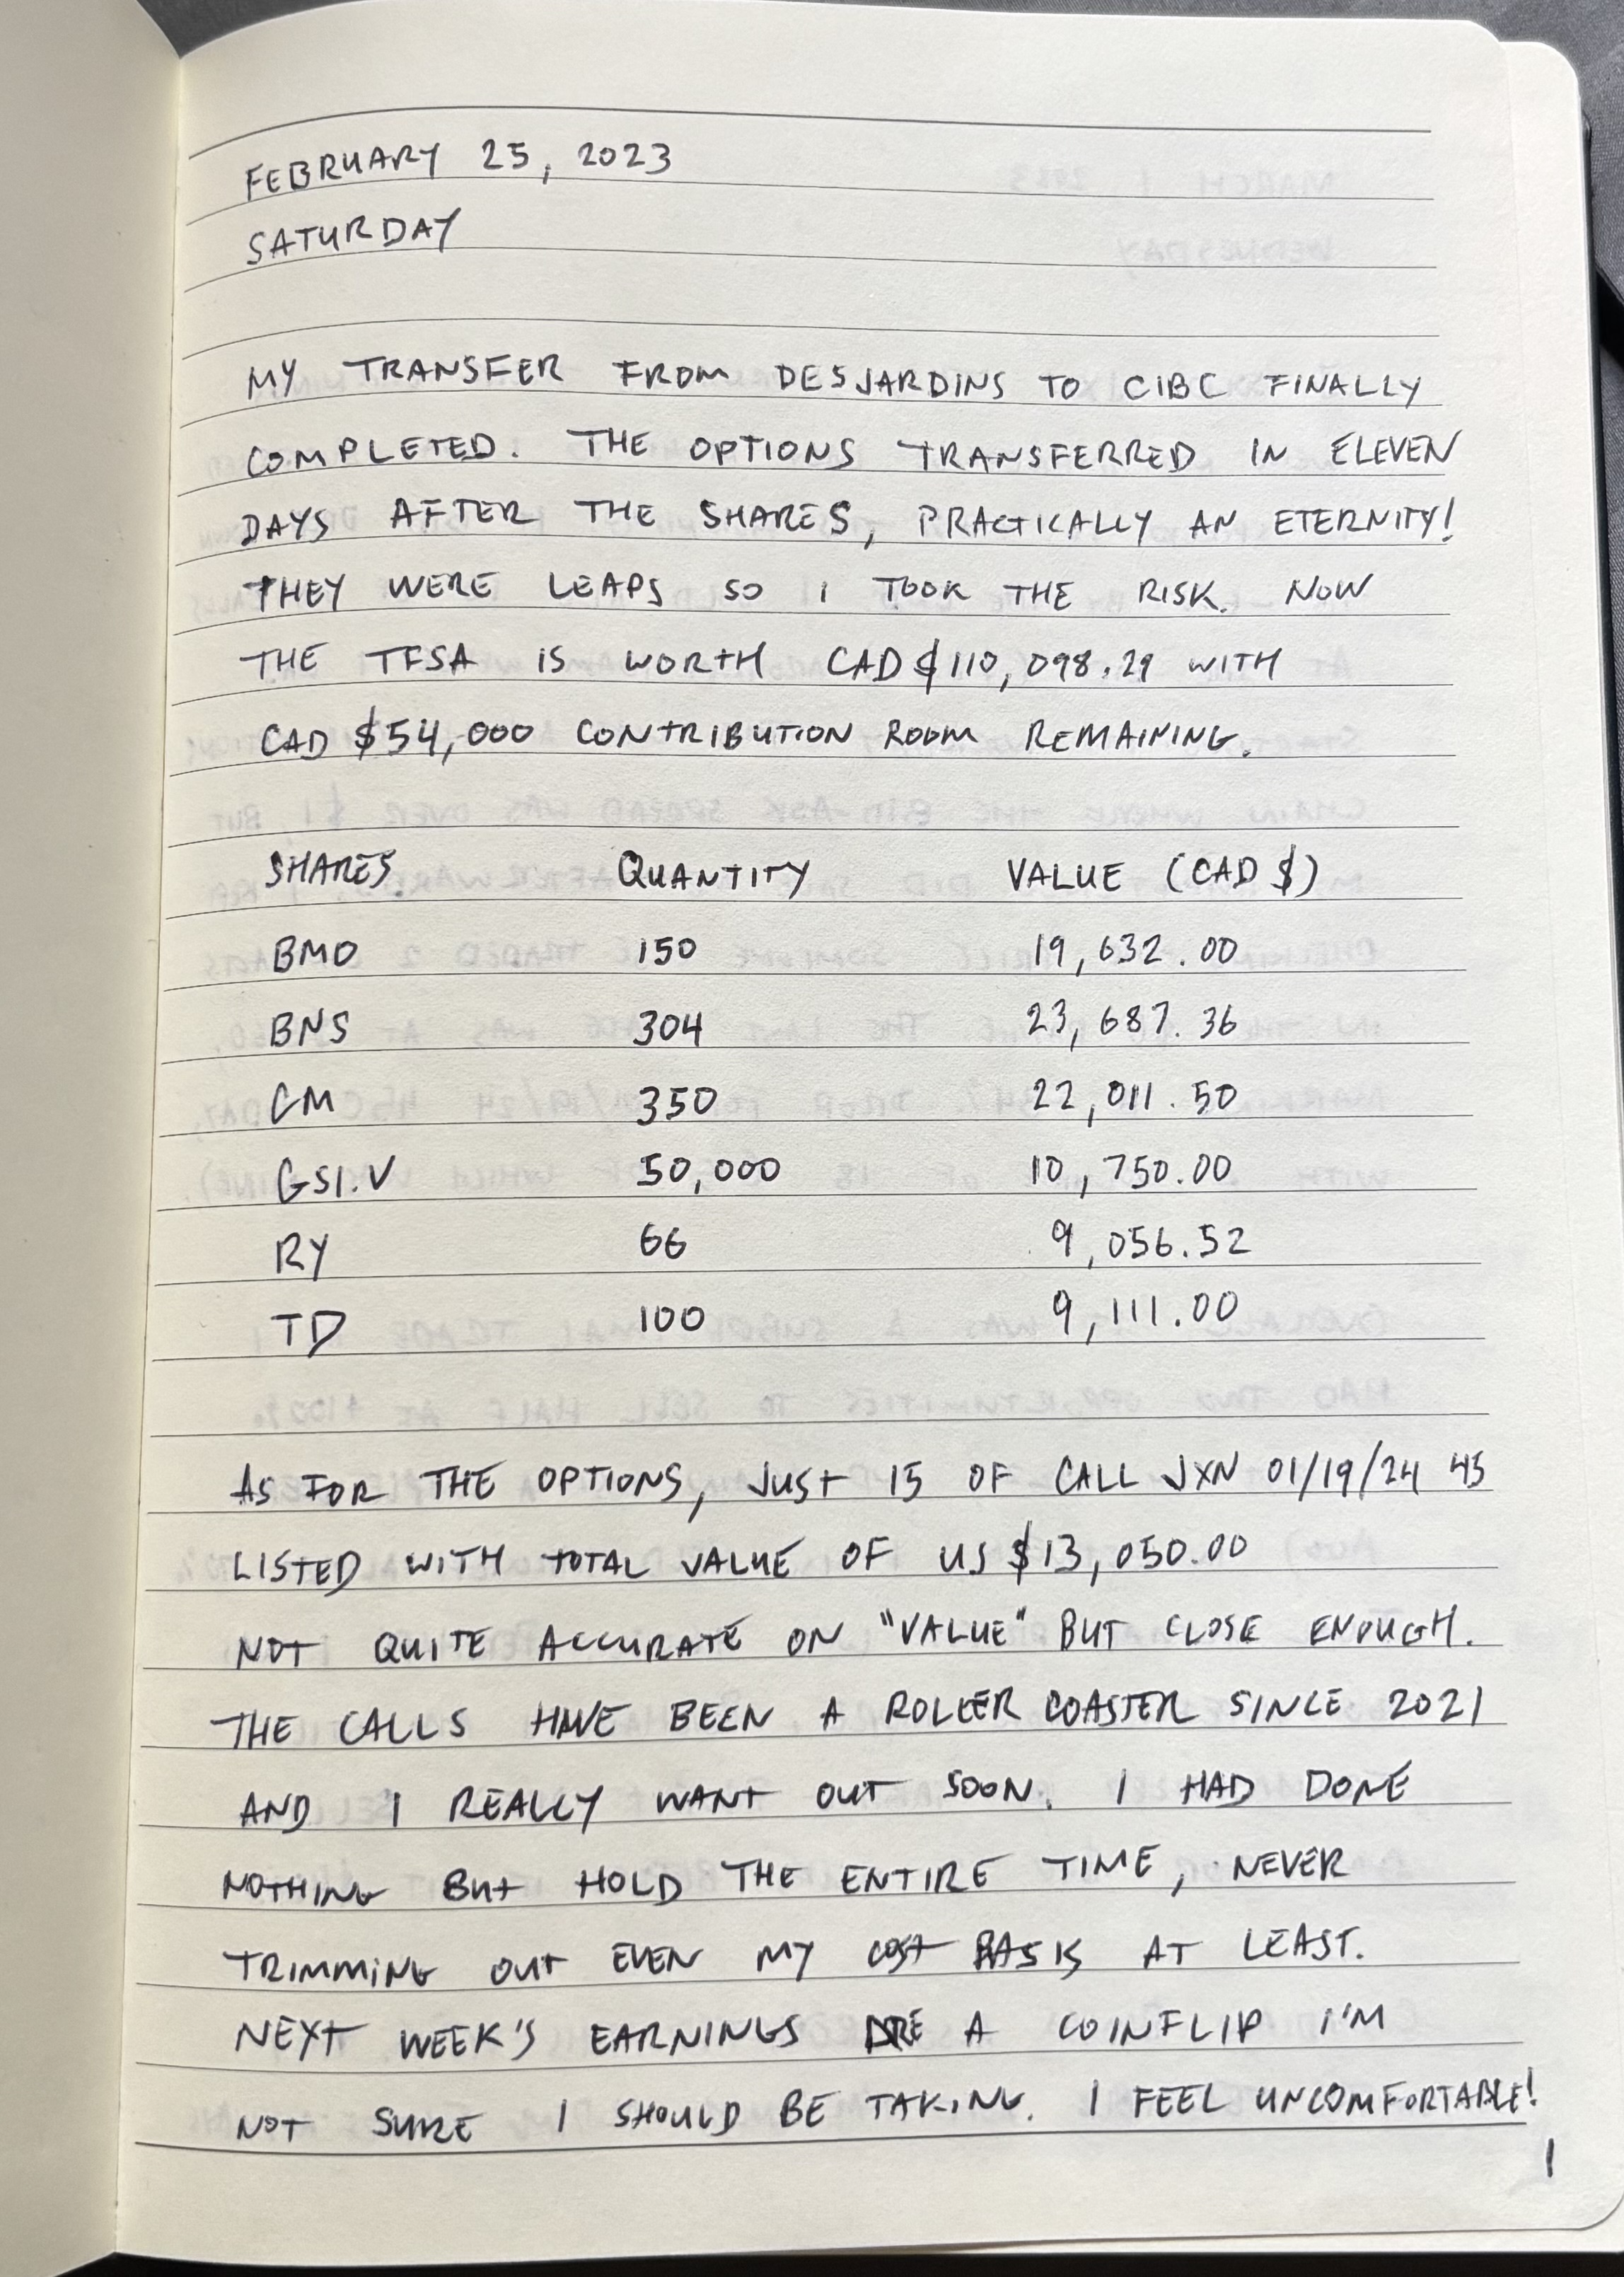 FEBRUARY 25, 2023
SATURDAY
MY TRANSFER FROM DESJARDINS TO CIBC FINALLY
COMPLETED. THE OPTIONS TRANSFERRED IN ELEVEN
DAYS AFTER THE SHARES, PRACTICALLY AN ETERNITY!
THEY WERE LEAPS SO I TOOK THE RISK. NOW
THE TFSA IS WORTH CAD $110,098.29 WITH
CAD $54,000 CONTRIBUTION ROOM REMAINING.
SHARES QUANTITY VALUE (CAD $)
BMO 150 19,632.00
BNS 304 23,687.36
CM 350 22,011.50
GSI.V 50,000 10,750.00
RY 66 9,056.52
TD 100 9,111.00
AS FOR THE OPTIONS, JUST 15 OF CALL JXN 01/19/24 45
LISTED WITH TOTAL VALUE OF US $13,050.00
NOT QUITE ACCURATE ON "VALUE" BUT CLOSE ENOUGH.
THE CALLS HAVE BEEN A ROLLER COASTER SINCE 2021
AND I REALLY WANT OUT SOON. I HAD DONE
NOTHING BUT HOLD THE ENTIRE TIME, NEVER
TRIMMING OUT EVEN MY COST BASIS AT LEAST.
NEXT WEEK'S EARNINGS ARE A COINFLIP I'M
NOT SURE I SHOULD BE TAKING. I FEEL UNCOMFORTABLE!
1